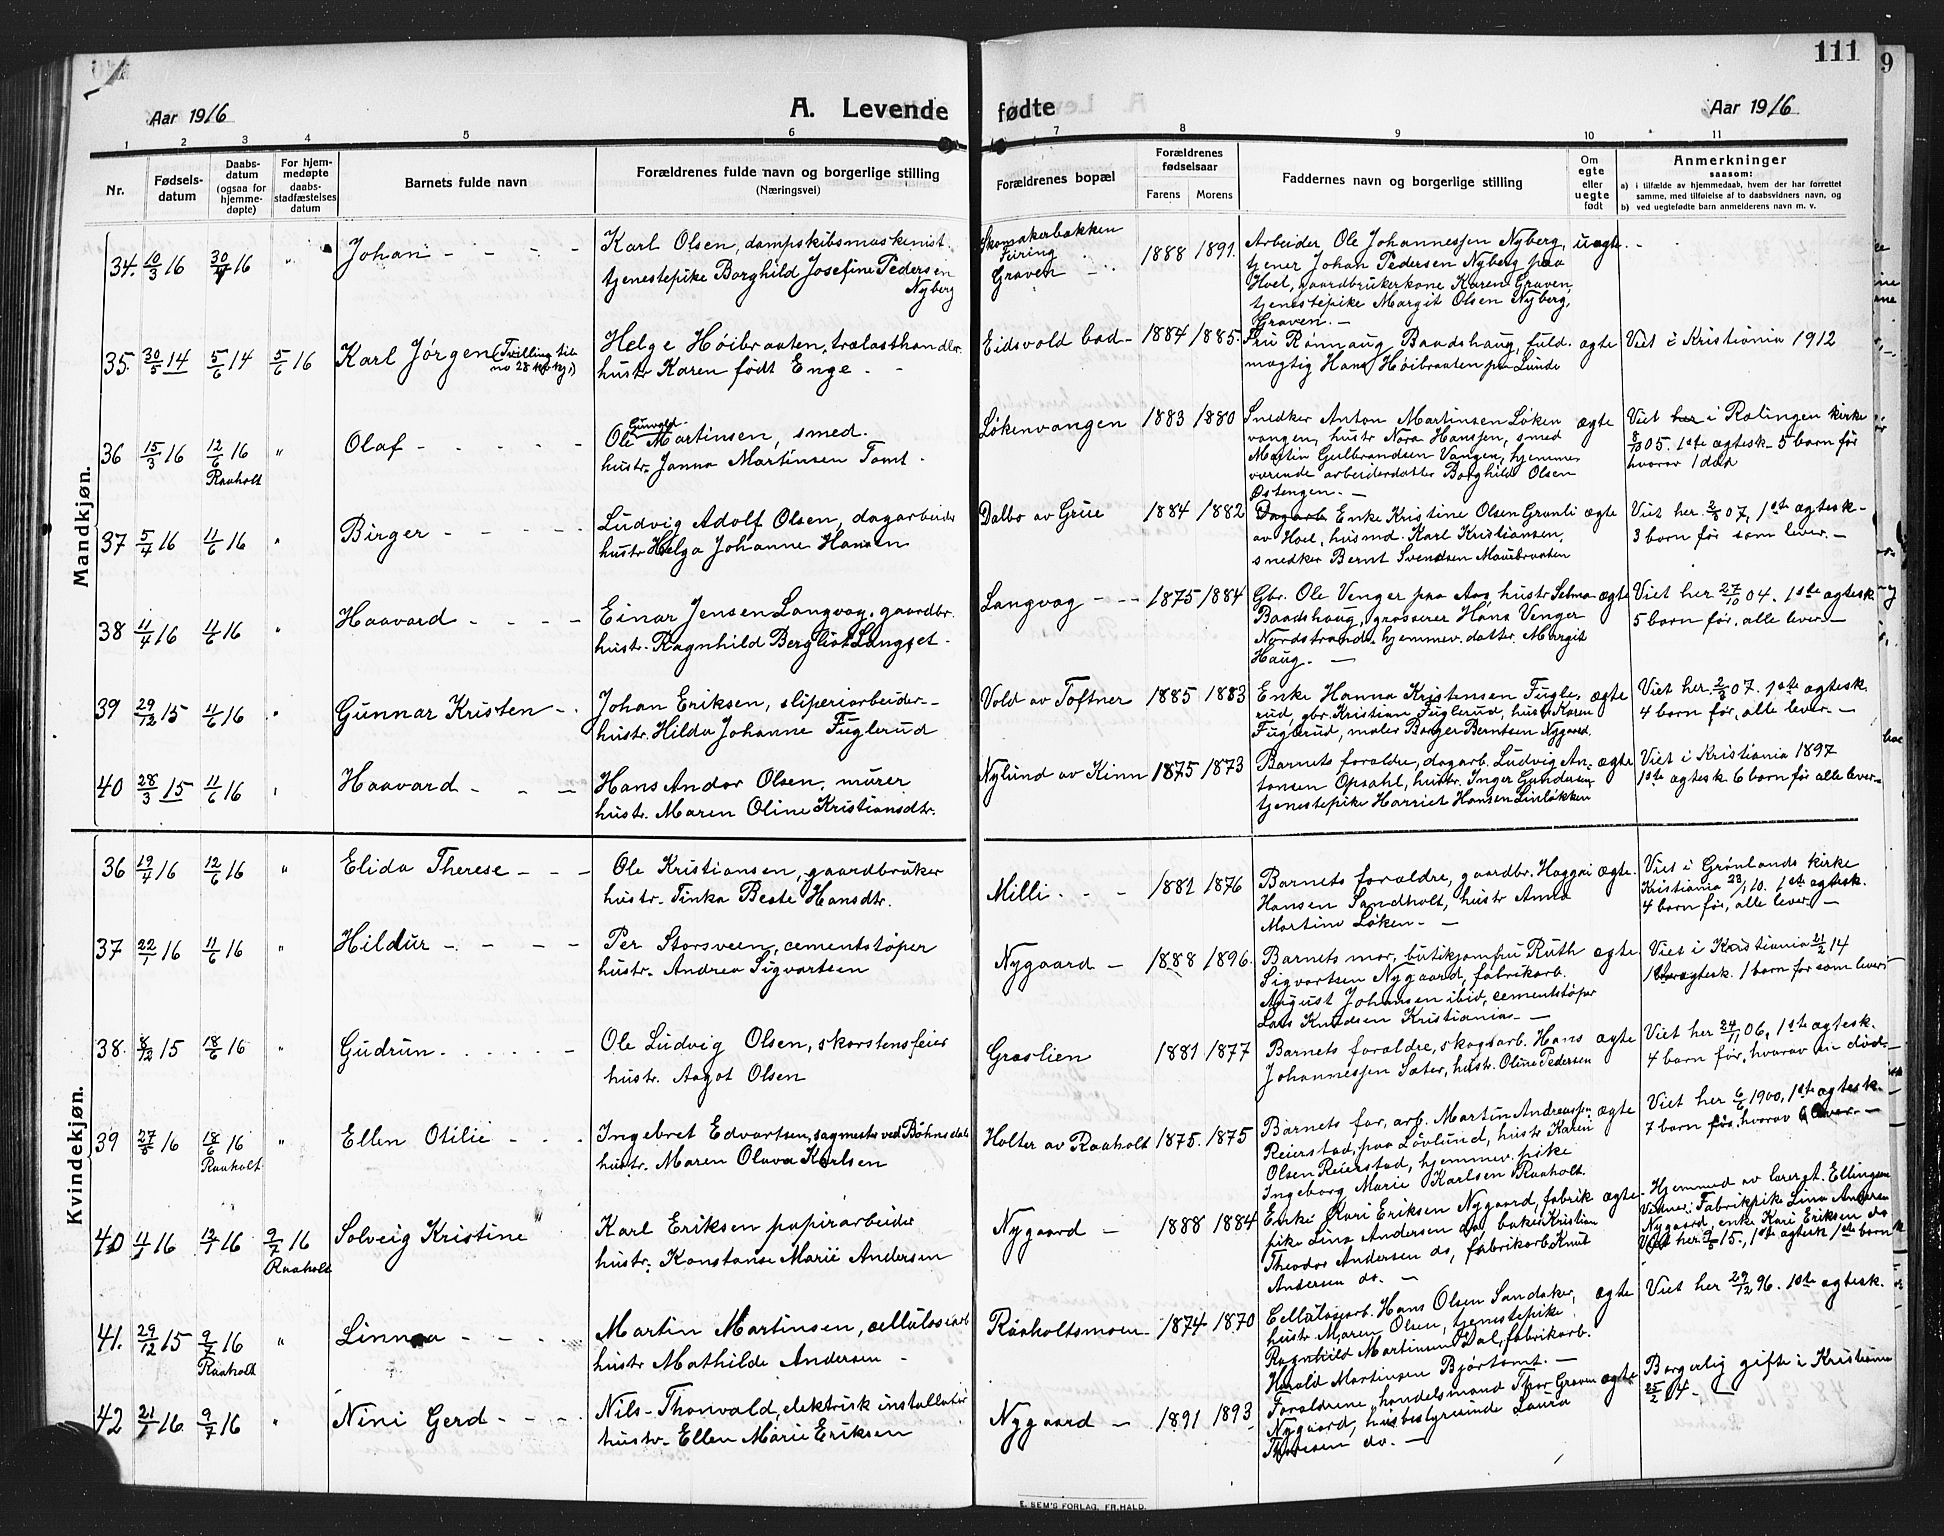 111
9
Aar 1916
A. Levende
fødte
Aar 1916
1
2
3
4
5
6
7
8
9
10
11
Nr.
Fødsels-
datum
Daabs-
datum
(ogsaa for
hjemme-
døpte)
For hjem-
medøpte
daabs-
stadfæstelses
datum
Barnets fulde navn
Forældrenes fulde navn og borgerlige stilling
(Næringsvei)
Forældrenes bopæl
Forældrenes
fødselsaar
Farens
Morens
Faddernes navn og borgerlige stilling
Om
egte
eller
uegte
født
Anmerkninger
saasom:
a) i tilfælde av hjemmedaab, hvem der har forrettet
samme, med tilføielse af to daabsvidners navn, og
b) ved uegtefødte barn anmelderens navn m. v.
Mandkjøn.
34. 10/3 16 30/4 16 " Johan - - - -
Karl Olsen, dampskibsmaskinist
tjenestepike Borghild Josefine Pedersen
Nyberg
Skomakerbakken
Feiring
Graven
1888 1891.
Arbeider Ole Johannessen Nyberg,
tjener Johan Pedersen Nyberg paa
Hoel, gaardbrukerkone Karen Graven,
tjenestepike Margit Olsen Nyberg,
Graven. -
uægte.
35. 30/5 14 5/6 14 5/6 16 Karl Jørgen (Tvilling til
no 28
Helge Høibraaten, trælasthandler
hustr. Karen født Enge - -
Eidsvold bad- 1884 1885.
Fru Rønnaug Baadshaug, fuld-
mægtig Hans Høibraaten paa Lunde
ægte
Viet i Kristiania 1912
36 15/3 16 12/6 16 " Olaf - - - - -
Raaholt
Gunvald
Ole Martinsen, smed.
hustr. Janna Martinsen Tomt.
Løkenvangen 1883 1880
Snedker Anton Martinsen Løken
vangen, hustr. Nora Hanssen, smed
Martin Gulbrandsen Vangen, hjemme
værende arbeiderdatter Borghild Olsen
Østengen. -
ægte
Viet her i Rælingen kirke
8/10 05. 1ste ægtesk. 5 barn før
hvorav 1 død
37 5/4 16 11/6 16 " Birger - - - -
Ludvig Adolf Olsen, dagarbeider
hustr. Helga Johanne Hansen
Dalbo av Grue 1884 1882
Dagarb. Enke Kristine Olsen Grunli
av Hoel, husmd. Karl Kristiansen,
snedker Bernt Svendsen Maurbraaten
ægte
Viet her 2/3 07, 1ste ægtesk-
3 barn før som lever. -
38 11/4 16 11/6 16 " Haavard - - - -
Einar Jensen Langvag, gaardbr.
hustr. Ragnhild Bergliot Langset -
Langvag - - - 1875 1884
Gbr. Ole Venger paa Aas, hustr. Selma
Baadshaug, grosserer Hans Venger
Nordstrand, hjemmev. datter Margit
Haug. -
ægte
Viet her 27/10 04. 1ste ægtesk
5 barn før, alle lever -
39 29/12 15 11/6 16 " Gunnar Kristen -
Johan Eriksen, sliperiarbeider -
hustr. Hilda Johanne Fuglerud
Vold av Toftner 1885 1883
Enke Hanna Kristensen Fugle-
rud, gbr. Kristian Fuglerud, hustr. Karen
Fuglerud, maler Borger Berntsen Nygaard.
ægte
Viet her 2/3 07. 1ste ægtesk.
4 barn før, alle lever. -
40 28/3 15 11/6 16 " Haavard - - -
Hans Andor Olsen, murer
hustr. Maren Oline Kristiansdtr.
Nylund av Kinn 1875 1873
Barnets forældre, dagarb. Ludvig An-
tonsen Opsahl, hustr. Inger Gundersen
tjenestepike Harriet Hansen Linløkken
ægte
Viet i Kristiania 1897
1ste ægtesk 6 barn før alle lever-
Kvindekjøn.
36 19/4 16 12/6 16 " Elida Therese - - -
Ole Kristiansen, gaardbruker
hustr. Tinka Beate Hansdtr.
Milli - - - 1882 1876
Barnets forældre, gaardbr. Haggai
Hansen Sandholt, hustr. Anna
Martine Løken - -
ægte.
Viet i Grønlands kirke
Kristiania 23/1 10. 1ste ægtesk.
4 barn før, alle lever -
37 22/1 16 11/6 16 " Hildur - - - -
Per Storsveen, cementstøper
hustr. Andrea Sigvartsen
Nygaard - 1888 1896.
Barnets mor, butikjomfru Ruth
Sigvartsen Nygaard, fabrikarb.
August Johansen ibid, cementstøper
Lars Knudsen Kristiania - -
ægte
Viet i Kristiania 21/2 14
1ste ægtesk. 1 barn før som lever -
38. 8/12 15 18/6 16 " Gudrun. - - - -
Ole Ludvig Olsen, skorstensfeier
hustr. Aagot Olsen
Graslien 1881 1877
Barnets forældre, skogsarb. Hans
Johannessen Sæter, hustr. Oline Pedersen
ægte
Viet her 24/11 06, 1ste ægtesk.
4 barn før, hvorav en død. -
39 27/5 16 18/6 16 " Ellen Otilie - - -
Raaholt
Ingebret Edvartsen, sagmester ved Bøhnsdalen
hustr. Maren Olava Karlsen
Holter av Raaholt 1875. 1875
Barnets far, arb. Martin Andreassen
Reierstad, paa Løvlund, hustr. Karen
Olsen Reierstad, hjemmev. pike
Ingeborg Marie Karlsen Raaholt.
ægte
Viet her 6/6 1900, 1ste ægtesk.
7 barn før, hvorav 6 lever. -
40 11/1 16 13/1 16 9/7 16 Solveig Kristine "
Raaholt
Karl Eriksen papirarbeider
hustr. Konstanse Marie Andersen
Nygaard - 1888 1884
Enke Kari Eriksen Nygaard, fabrik
pike Lina Andersen do, baker Kristian
Theodor Andersen do, fabrikarb. Knut
Andersen do. -
ægte
Hjemmed. av læreret. Ellingsen
Vidner: Fabrikpike Lina Andersen
Nygaard, enke Kari Eriksen do
Viet her 15., 1ste ægtesk 1ste barn
41. 29/12 15 9/7 16 " Linnea - - - -
Raaholt
Martin Martinsen, cellulosearb
hustr Mathilde Andersen -
Raaholtsmoen 1874 1870
Cellulosearb. Hans Olsen Sandaker,
hustr Maren Olsen, tjenestepike
Ragnhild Martinsen Dal, fabrikarb.
Harald Martinsen Bjørtomt. -
ægte
Viet her 29/12 96. 1ste ægtesk.
42 21/1 16 9/7 16 " Nini Gerd - - - -
Nils Thorvald, elektrisk installatør
hustr. Ellen Marie Eriksen
Nygaard - 1891 1893
Forældrene, handelsmand Thor Graven
Nygaard, husbestyrerinde Laura
Thoresen do. -
ægte
Borgerlig gifte i Kristiania
25/2 14. -
E. SEM'S FORLAG, FR.HALD.